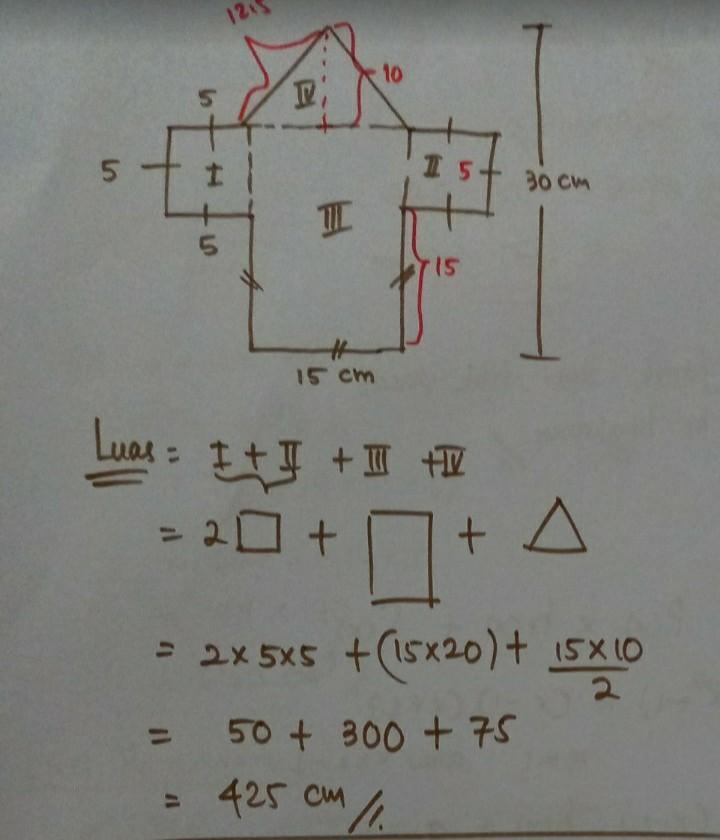 12,5
10
IV
5
5
I
II 5
30 cm
III
5
15
15 cm
Luas = I + II + III + IV
= 2□ + ▯ + △
= 2x5x5 + (15x20) + 15x10/2
= 50 + 300 + 75
= 425 cm //.